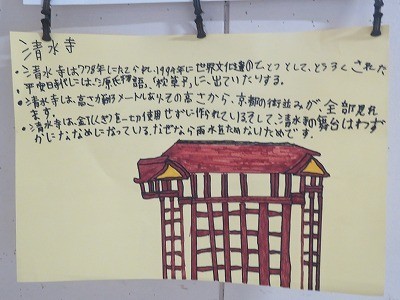 清水寺
・清水寺は778年にたてられ、1994年に世界文化遺産の一つとして、とうろくされた
平安日朝には「源氏物語」、「枕草子」に、出ていたりする。
・清水寺は、高さが約 メートルありその高さから、京都の街並みが、全部見れ
ます。
・清水寺は、金丁(くぎ)を一切使用せずに作られているそして、清水寺の舞台はわず
かにななめになっている。なぜなら雨水をためないためです。